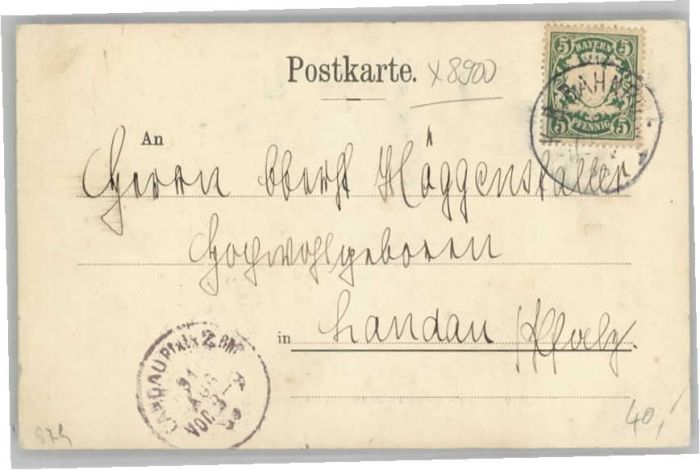 Postkarte.
x8900
5 BAYERN 5
5 PFENNIG 5
BAHN
An
Herrn Oberst Höggenstaller
Hochwohlgeboren
in Landau /Pfalz.
LANDAU Pfalz 2 BHF
AUG
VOR. 8-
40,-